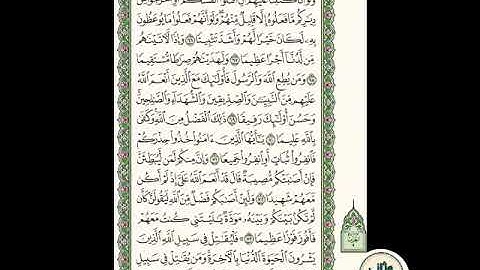 وَلَوۡ أَنَّا كَتَبۡنَا عَلَيۡهِمۡ أَنِ ٱقۡتُلُوٓاْ أَنفُسَكُمۡ أَوِ ٱخۡرُجُواْ مِن
دِيَٰرِكُم مَّا فَعَلُوهُ إِلَّا قَلِيلٞ مِّنۡهُمۡۖ وَلَوۡ أَنَّهُمۡ فَعَلُواْ مَا يُوعَظُونَ
بِهِۦ لَكَانَ خَيۡرٗا لَّهُمۡ وَأَشَدَّ تَثۡبِيتٗا ٦٦ وَإِذٗا لَّأٓتَيۡنَٰهُم
مِّن لَّدُنَّآ أَجۡرًا عَظِيمٗا ٦٧ وَلَهَدَيۡنَٰهُمۡ صِرَٰطٗا مُّسۡتَقِيمٗا
٦٨ وَمَن يُطِعِ ٱللَّهَ وَٱلرَّسُولَ فَأُوْلَٰٓئِكَ مَعَ ٱلَّذِينَ أَنۡعَمَ ٱللَّهُ
عَلَيۡهِم مِّنَ ٱلنَّبِيِّـۧنَ وَٱلصِّدِّيقِينَ وَٱلشُّهَدَآءِ وَٱلصَّٰلِحِينَۚ
وَحَسُنَ أُوْلَٰٓئِكَ رَفِيقٗا ٦٩ ذَٰلِكَ ٱلۡفَضۡلُ مِنَ ٱللَّهِۚ وَكَفَىٰ
بِٱللَّهِ عَلِيمٗا ٧٠ يَٰٓأَيُّهَا ٱلَّذِينَ ءَامَنُواْ خُذُواْ حِذۡرَكُمۡ
فَٱنفِرُواْ ثُبَاتٍ أَوِ ٱنفِرُواْ جَمِيعٗا ٧١ وَإِنَّ مِنكُمۡ لَمَن لَّيُبَطِّئَنَّ
فَإِنۡ أَصَٰبَتۡكُم مُّصِيبَةٞ قَالَ قَدۡ أَنۡعَمَ ٱللَّهُ عَلَيَّ إِذۡ لَمۡ أَكُن
مَّعَهُمۡ شَهِيدٗا ٧٢ وَلَئِنۡ أَصَٰبَكُمۡ فَضۡلٞ مِّنَ ٱللَّهِ لَيَقُولَنَّ كَأَن
لَّمۡ تَكُنۢ بَيۡنَكُمۡ وَبَيۡنَهُۥ مَوَدَّةٞ يَٰلَيۡتَنِي كُنتُ مَعَهُمۡ
فَأَفُوزَ فَوۡزًا عَظِيمٗا ٧٣ ۞ فَلۡيُقَٰتِلۡ فِي سَبِيلِ ٱللَّهِ ٱلَّذِينَ
يَشۡرُونَ ٱلۡحَيَوٰةَ ٱلدُّنۡيَا بِٱلۡأٓخِرَةِۚ وَمَن يُقَٰتِلۡ فِي سَبِيلِ